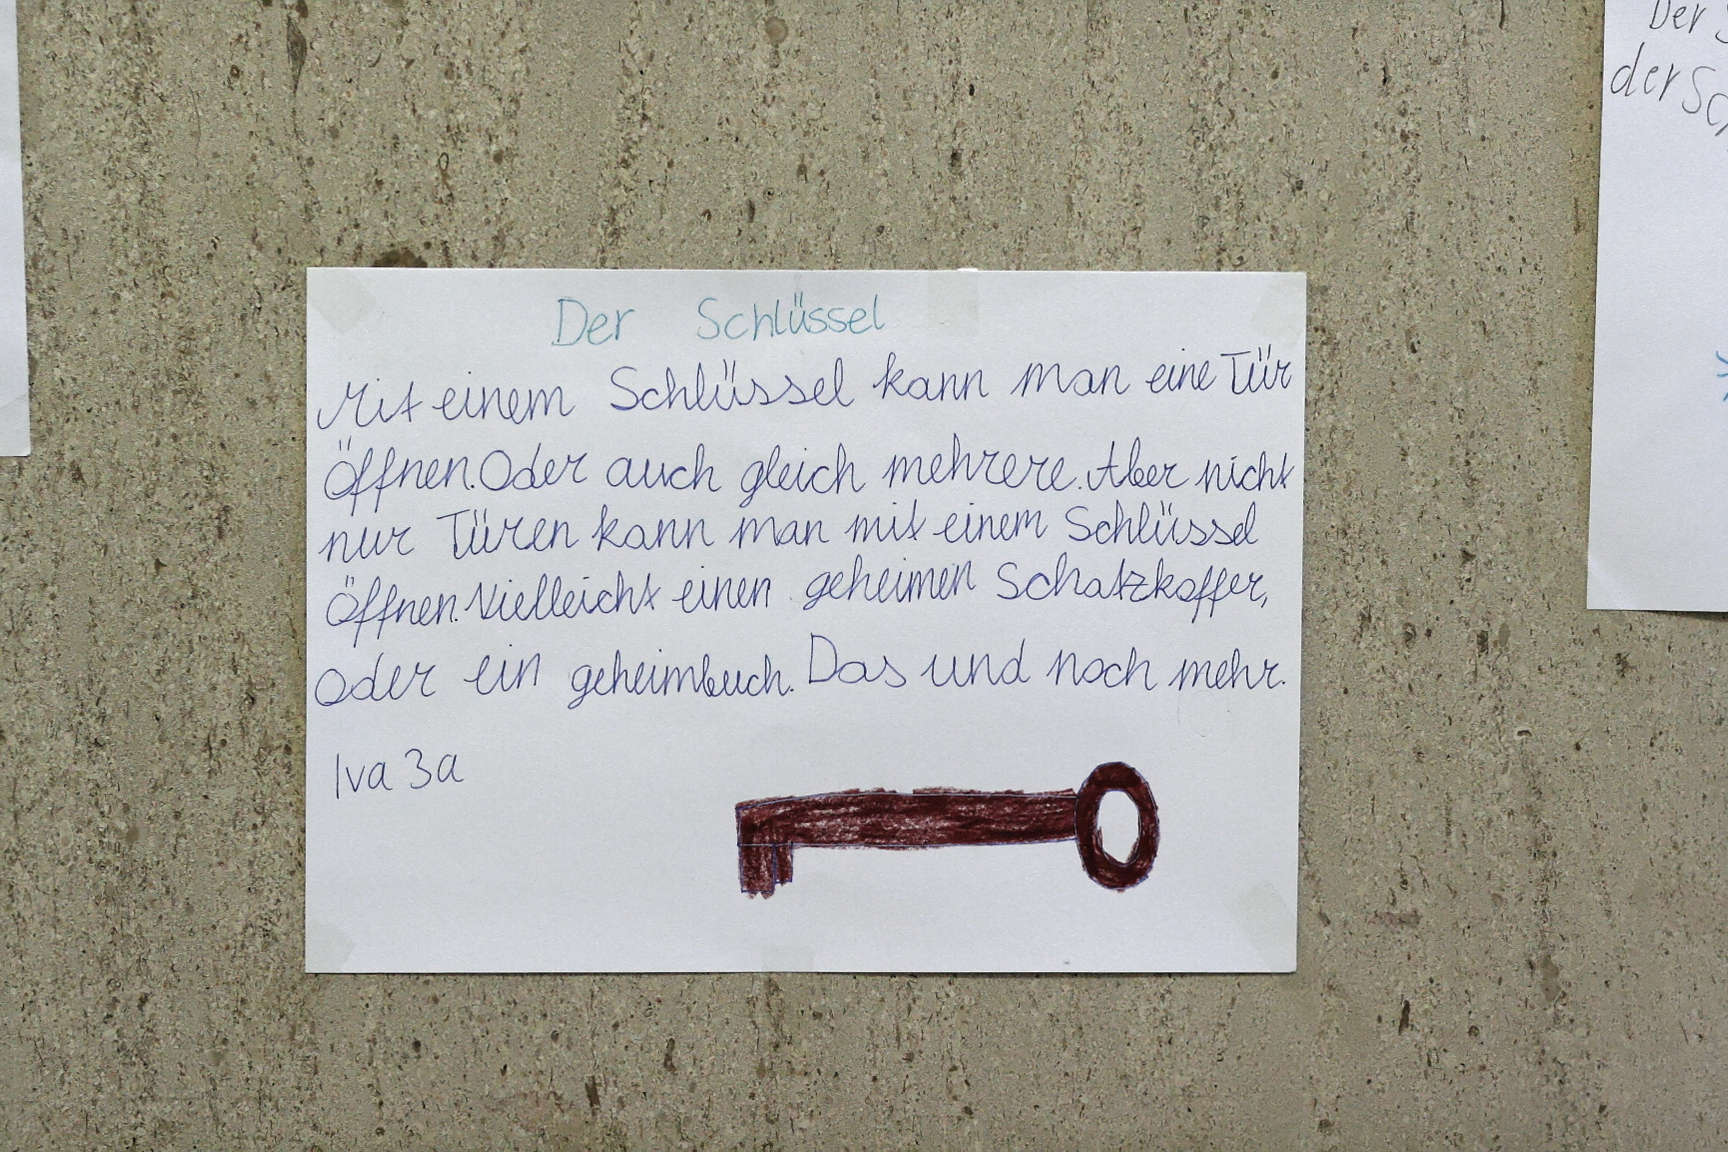 Der Schlüssel
Mit einem Schlüssel kann man eine Tür
Öffnen. Oder auch gleich mehrere. Aber nicht
nur Türen kann man mit einem Schlüssel
Öffnen. Vielleicht einen geheimen Schatzkoffer,
oder ein geheimbuch. Das und noch mehr.
Iva 3a
Der
der